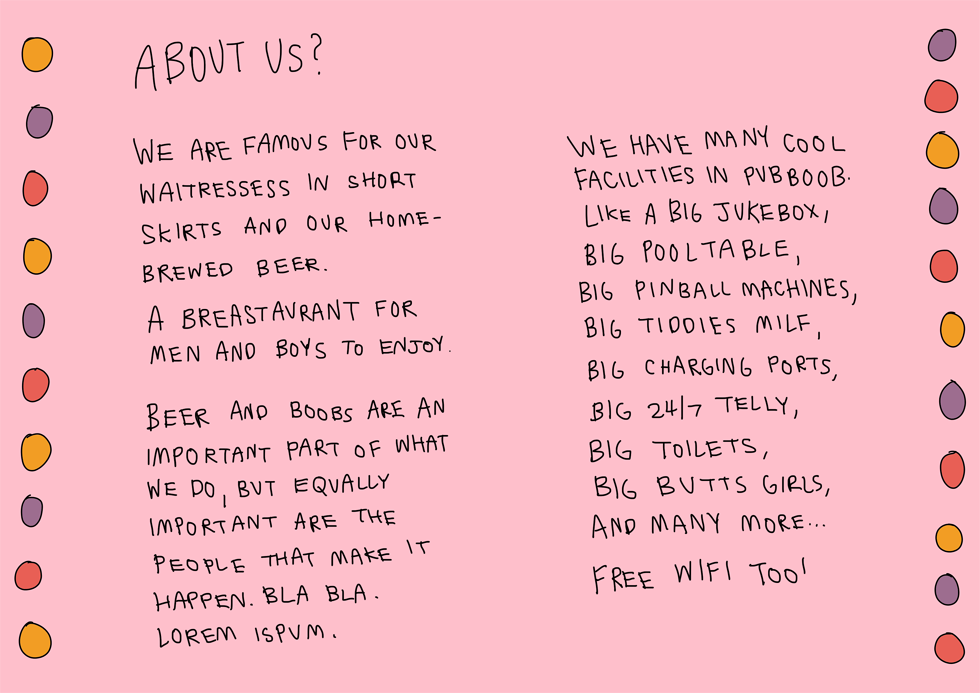 ABOUT US?
WE ARE FAMOUS FOR OUR
WAITRESSESS IN SHORT
SKIRTS AND OUR HOME-
BREWED BEER.
A BREASTAURANT FOR
MEN AND BOYS TO ENJOY.
BEER AND BOOBS ARE AN
IMPORTANT PART OF WHAT
WE DO, BUT EQUALLY
IMPORTANT ARE THE
PEOPLE THAT MAKE IT
HAPPEN. BLA BLA.
LOREM ISPUM.
WE HAVE MANY COOL
FACILITIES IN PUBBOOB.
LIKE A BIG JUKEBOX,
BIG POOLTABLE,
BIG PINBALL MACHINES,
BIG TIDDIES MILF,
BIG CHARGING PORTS,
BIG 24/7 TELLY,
BIG TOILETS,
BIG BUTTS GIRLS,
AND MANY MORE...
FREE WIFI TOO!